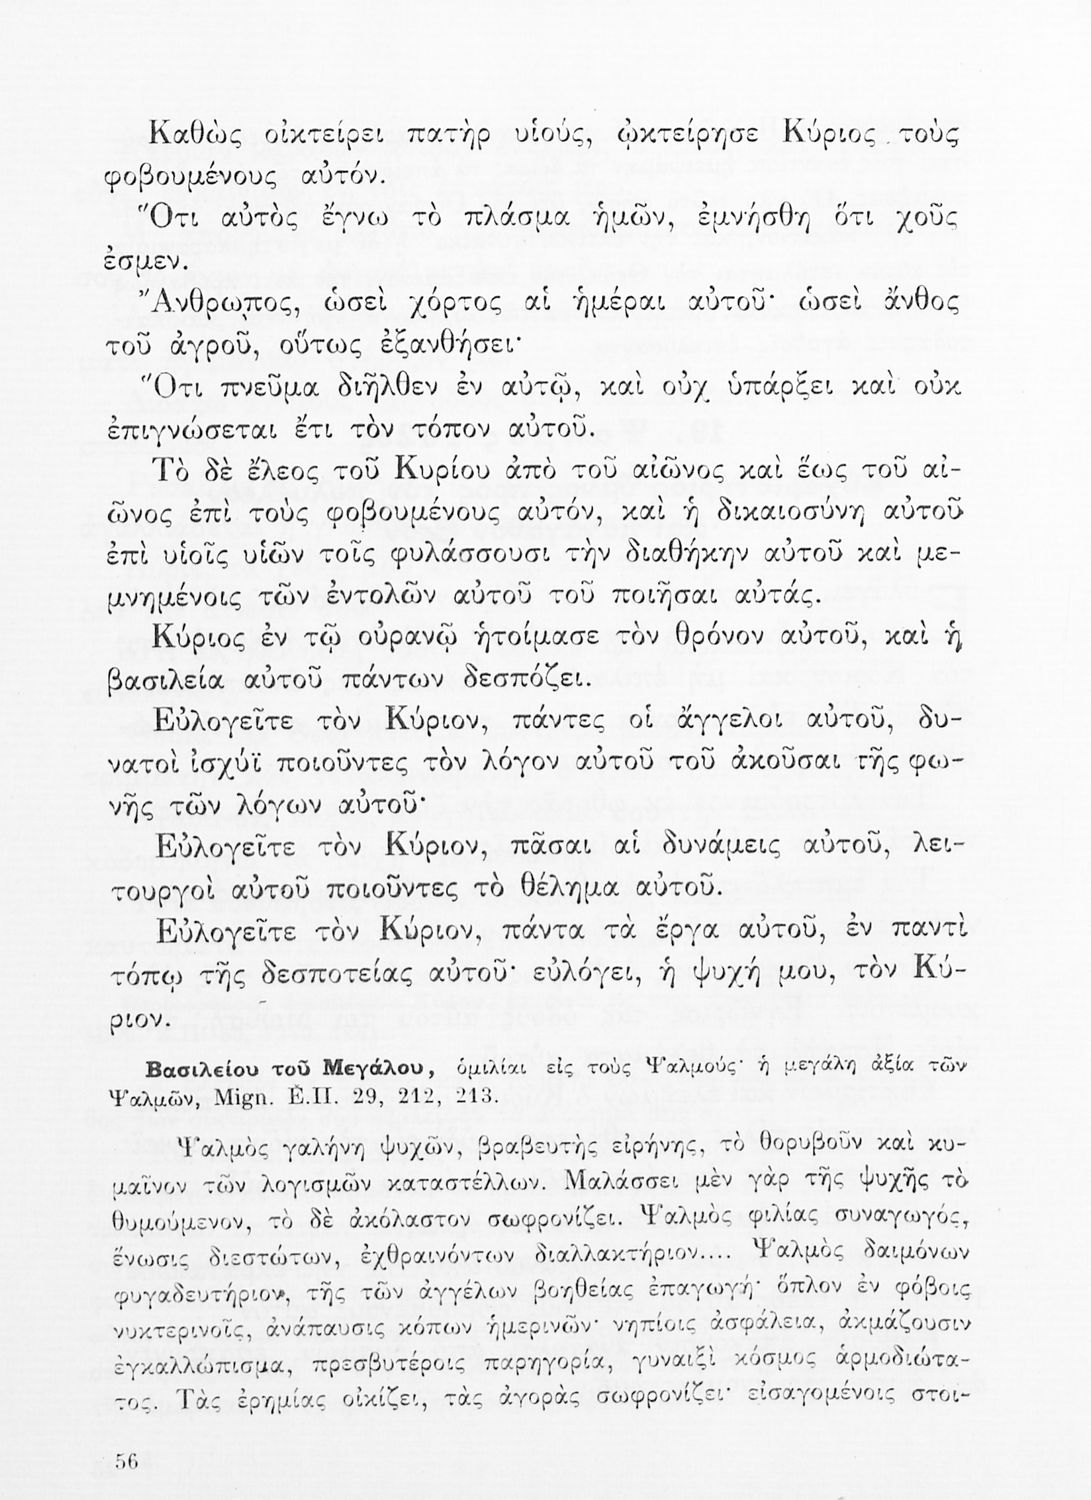 Καθὼς οἰκτείρει πατὴρ υἱούς, ᾠκτείρησε Κύριος τοὺς
φοβουμένους αὐτόν.
Ὅτι αὐτὸς ἔγνω τὸ πλάσμα ἡμῶν, ἐμνήσθη ὅτι χοῦς
ἐσμεν.
Ἄνθρωπος, ὡσεὶ χόρτος αἱ ἡμέραι αὐτοῦ· ὡσεὶ ἄνθος
τοῦ ἀγροῦ, οὕτως ἐξανθήσει·
Ὅτι πνεῦμα διῆλθεν ἐν αὐτῷ, καὶ οὐχ ὑπάρξει καὶ οὐκ
ἐπιγνώσεται ἔτι τὸν τόπον αὐτοῦ.
Τὸ δὲ ἔλεος τοῦ Κυρίου ἀπὸ τοῦ αἰῶνος καὶ ἕως τοῦ αἰ-
ῶνος ἐπὶ τοὺς φοβουμένους αὐτόν, καὶ ἡ δικαιοσύνη αὐτοῦ
ἐπὶ υἱοῖς υἱῶν τοῖς φυλάσσουσι τὴν διαθήκην αὐτοῦ καὶ με-
μνημένοις τῶν ἐντολῶν αὐτοῦ τοῦ ποιῆσαι αὐτάς.
Κύριος ἐν τῷ οὐρανῷ ἡτοίμασε τὸν θρόνον αὐτοῦ, καὶ ἡ
βασιλεία αὐτοῦ πάντων δεσπόζει.
Εὐλογεῖτε τὸν Κύριον, πάντες οἱ ἄγγελοι αὐτοῦ, δυ-
νατοὶ ἰσχύϊ ποιοῦντες τὸν λόγον αὐτοῦ τοῦ ἀκοῦσαι τῆς φω-
νῆς τῶν λόγων αὐτοῦ·
Εὐλογεῖτε τὸν Κύριον, πᾶσαι αἱ δυνάμεις αὐτοῦ, λει-
τουργοὶ αὐτοῦ ποιοῦντες τὸ θέλημα αὐτοῦ.
Εὐλογεῖτε τὸν Κύριον, πάντα τὰ ἔργα αὐτοῦ, ἐν παντὶ
τόπῳ τῆς δεσποτείας αὐτοῦ· εὐλόγει, ἡ ψυχή μου, τὸν Κύ-
ριον.
Βασιλείου τοῦ Μεγάλου, ὁμιλίαι εἰς τοὺς Ψαλμούς· ἡ μεγάλη ἀξία τῶν
Ψαλμῶν, Mign. Ἑ.Π. 29, 212, 213.
Ψαλμὸς γαλήνη ψυχῶν, βραβευτὴς εἰρήνης, τὸ θορυβοῦν καὶ κυ-
μαῖνον τῶν λογισμῶν καταστέλλων. Μαλάσσει μὲν γὰρ τῆς ψυχῆς τὸ
θυμούμενον, τὸ δὲ ἀκόλαστον σωφρονίζει. Ψαλμὸς φιλίας συναγωγός,
ἕνωσις διεστώτων, ἐχθραινόντων διαλλακτήριον.... Ψαλμὸς δαιμόνων
φυγαδευτήριον, τῆς τῶν ἀγγέλων βοηθείας ἐπαγωγή· ὅπλον ἐν φόβοις
νυκτερινοῖς, ἀνάπαυσις κόπων ἡμερινῶν· νηπίοις ἀσφάλεια, ἀκμάζουσιν
ἐγκαλλώπισμα, πρεσβυτέροις παρηγορία, γυναιξὶ κόσμος ἁρμοδιώτα-
τος. Τὰς ἐρημίας οἰκίζει, τὰς ἀγορὰς σωφρονίζει· εἰσαγομένοις στοι-
56